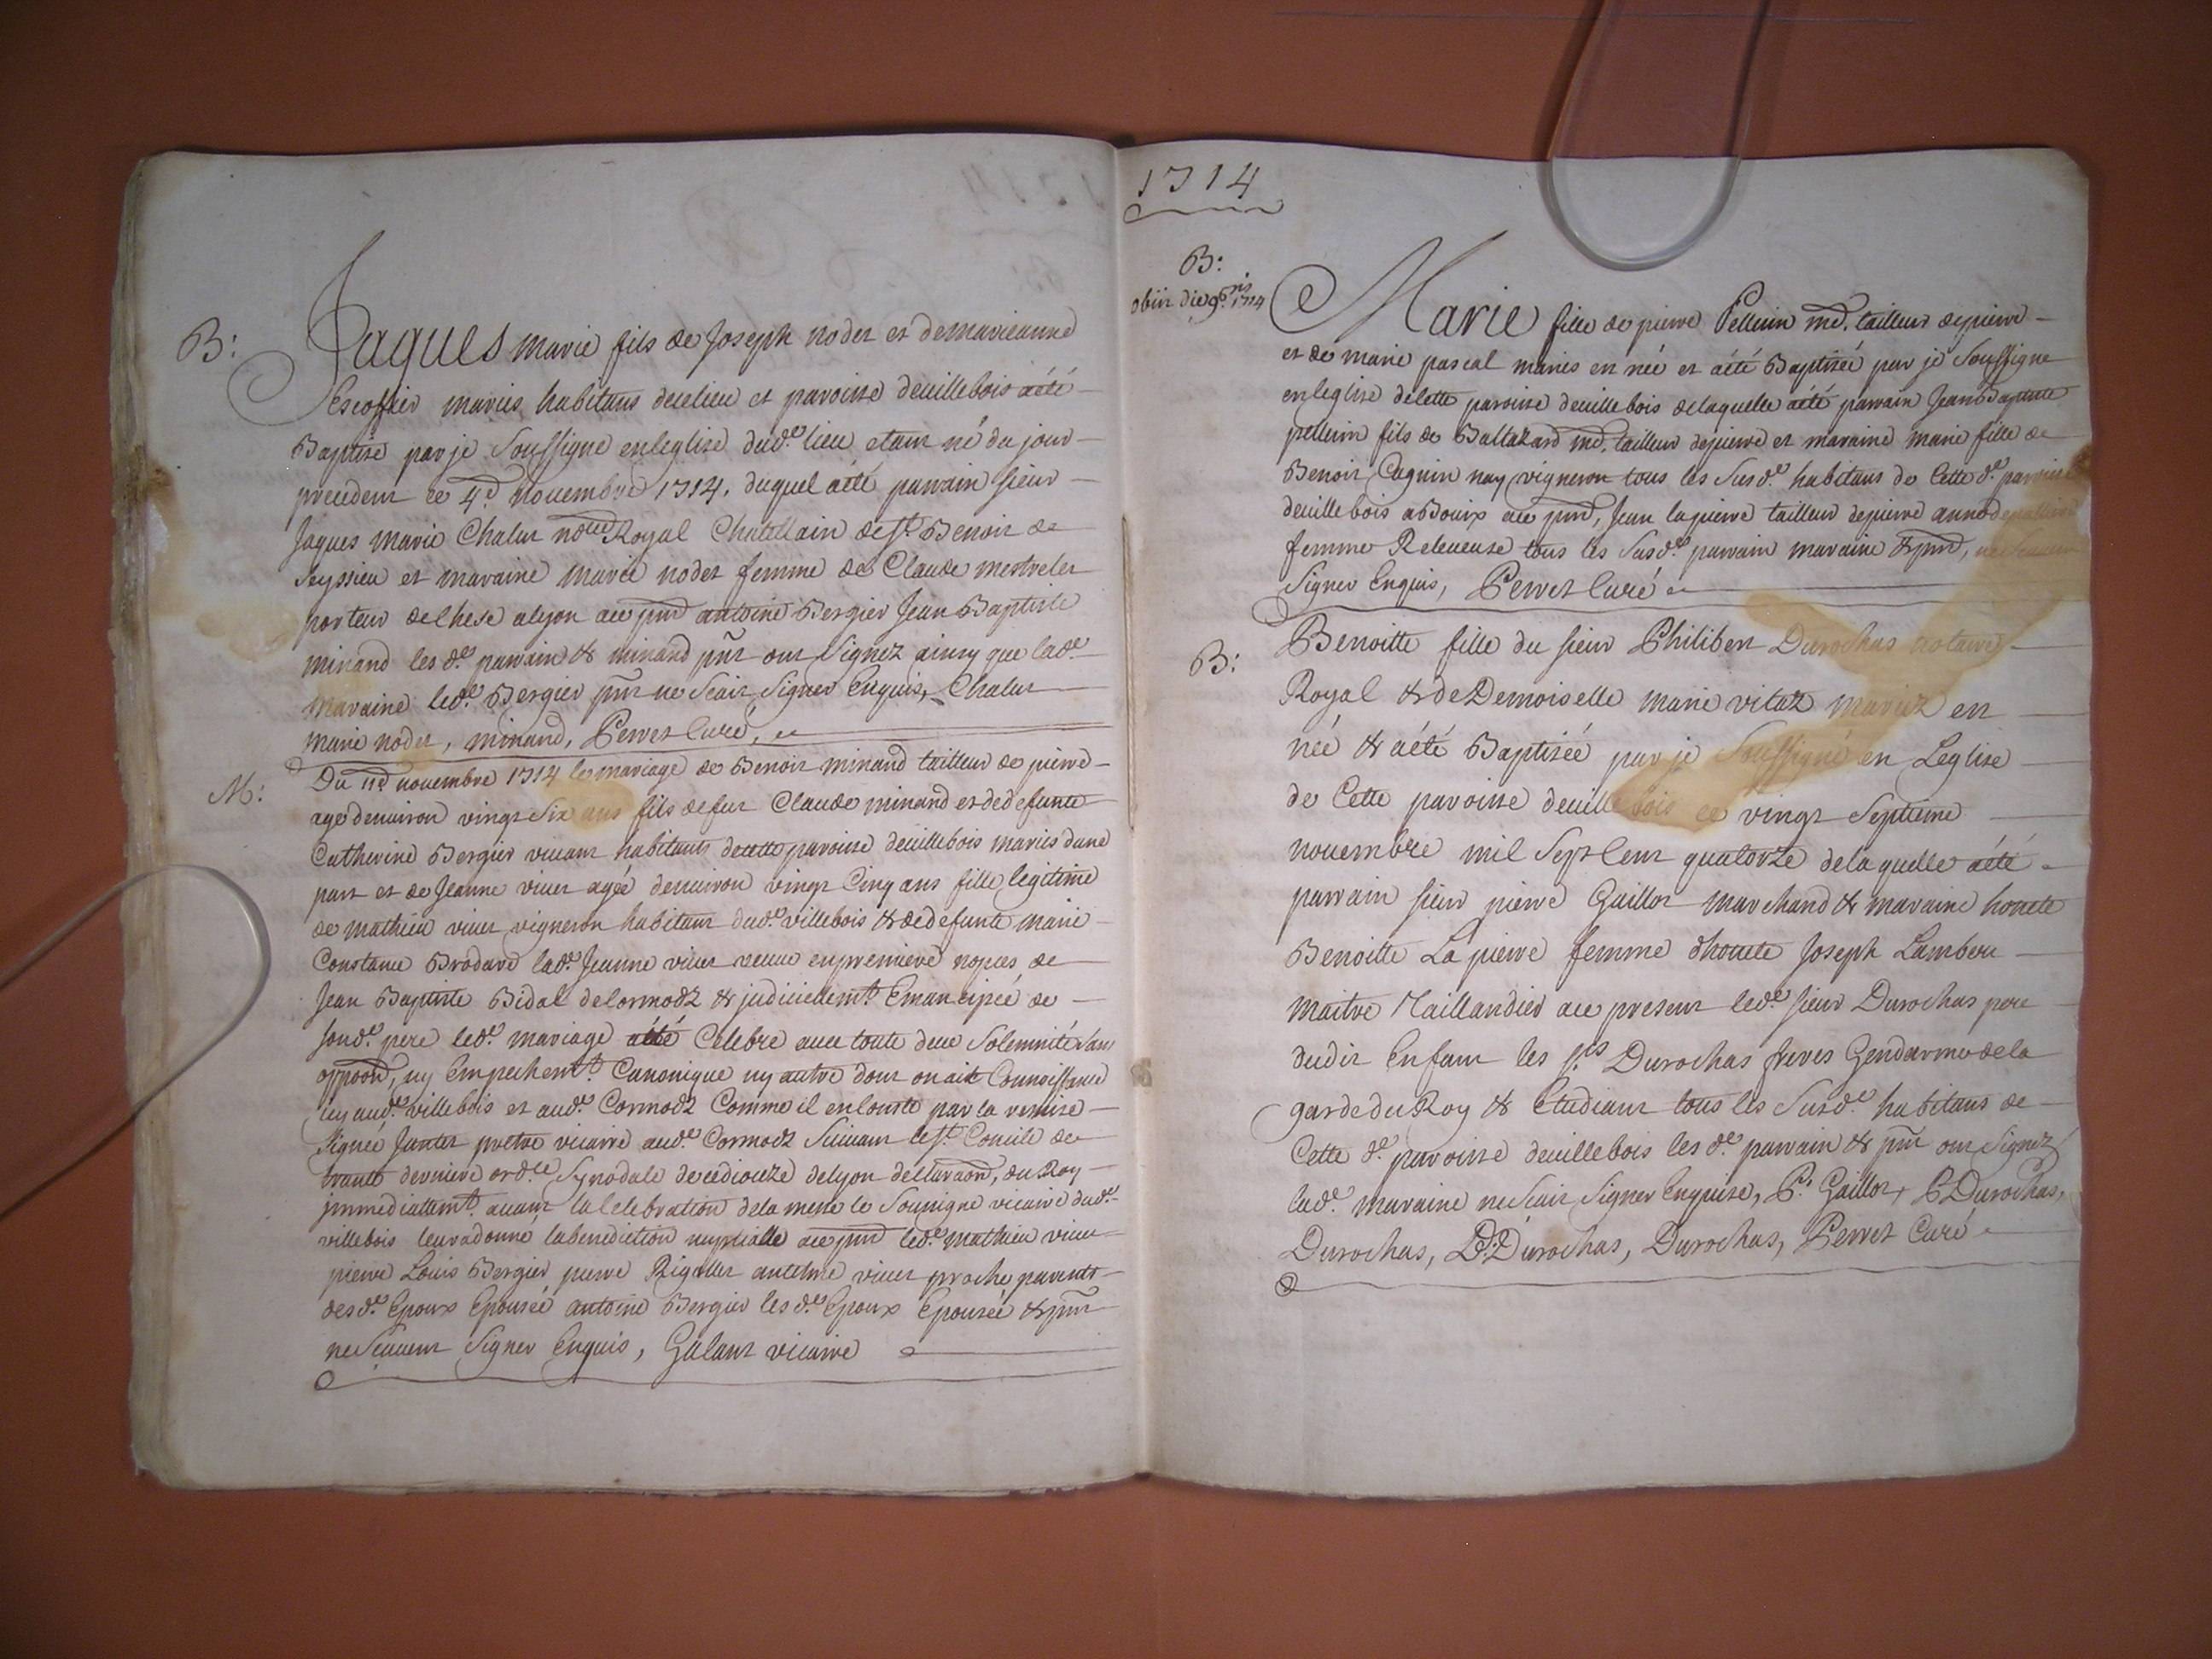 B:
Jaques marie fils de Joseph nodet et demarieanne
Escoffier maries habitans decelieu et paroisse deuillebois aété
Baptisé parje Soussigné enleglise dud.e lieu etant né du jour
precedent ce 4.d Nouembre 1714. duquel aété parrain sieur
Jaques marie Chalut no.re Royal Chatellain de St. Benoit de
Seyssieu et maraine marie nodet femme de Claude mestrelet
porteur alyon aee pnd antoine Bergier Jean Baptiste
minand les d.e parrain & minand pnt ont Signez ainsy que lad.e
maraine led.e Bergier pnt ne Scait Signer Enquis, Chalut
marie nodet, minand, Perret Curé,
M:
Du 11d nouembre 1714 le mariage de Benoit minand tailleur de pierre
agé denuiron vingt Six ans fils defut Claude minand et dedefunte
Catherine Bergier viuant habitants decette paroisse deuillebois maries dune
part et de Jeanne viuet agée denuiron vingt Cinq ans fille legitime
de mathieu viuet vigneron habitant dud.e villebois & dedefunte marie
Constance Brodard lad.e Jeanne viuet veuue enpremiere nopces de
Jean Baptiste Bidal delormodz & judiciellemt. Emancipée de
sond.e pere led.e mariage aété Celebré auec toute deue Solemnité sans
oppoon, ny Empechemt. Canonique ny autre dont onait Connoissance
ny aud.e villebois et aud.e Cormodz Comme il enConste par la remise
Signée Juntet pretre vicaire aud.e Cormodz Suiuant le St. Concile de
trante derniere ord.ce Synodale decediocéze delyon declaraon, du Roy
jmmediattemt. auant la Celebration dela messe le Soussigné vicaire dud.e
villebois leuradonné labenediction nuptialle aee pnd led.e mathieu viuet
pierre Louis Bergier pierre Rigollet antelme viuet proche parents
des d.e Epoux Epousée antoine Bergier les d.e Epoux Epousée & pnt
ne Scauent Signer Enquis, Galant vicaire
1714
B:
obiit die 9bris 1714
Marie fille de pierre Pellerin md. tailleur depierre
et de marie pascal maries est née et aété Baptizée par je Soussigné
enleglise decette paroisse deuillebois delaquelle aété parrain Jeanbaptiste
pellerin fils de Baltazard md. tailleur depierre et maraine marie fille de
Benoit Cognin nay vigneron tous les Susd.e habitans de Cette d.e paroisse
deuillebois aee pnd, Jean lapierre tailleur depierre
femme Releueuse tous les Susd.e parrain maraine & pnd,
Signer Enquis, Perret Curé
B:
Benoitte fille du sieur Philibert Durochas notaire
Royal & de Demoiselle marie vitaz mariez est
née & aété Baptizée par je Soussigné en Leglise
de Cette paroisse deuillebois ce vingt Septieme
nouembre mil Sept Cent quatorze delaquelle aété
parrain sieur pierre Gaillot marchand & maraine honete
Benoitte Lapierre femme dhonete Joseph Lambert
maitre Taillandier aee present led.e sieur Durochas pere
dudit Enfant les s.rs Durochas freres Gendarme dela
garde du Roy & Etudiant tous les Susd.e habitans de
Cette d.e paroisse deuillebois les d.e parrain & pnt ont Signez
lad.e maraine ne Scait Signer Enquise, P. Gaillot, P Durochas,
Durochas, D. Durochas, Durochas, Perret Curé